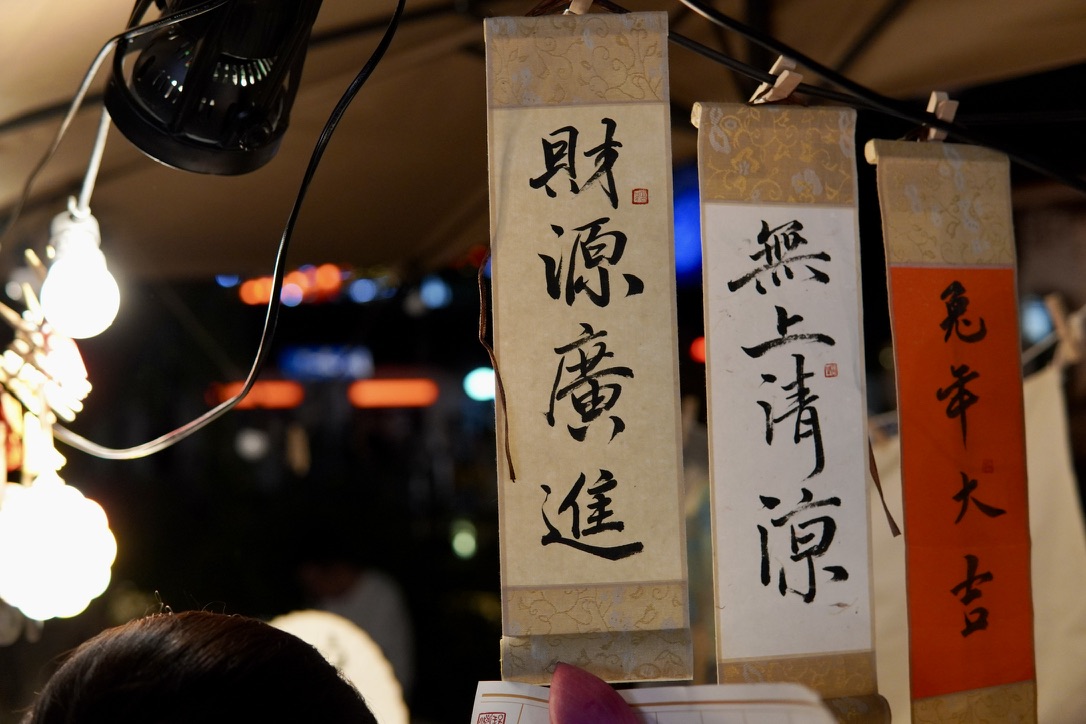 財源廣進
無上清涼
兔年大吉